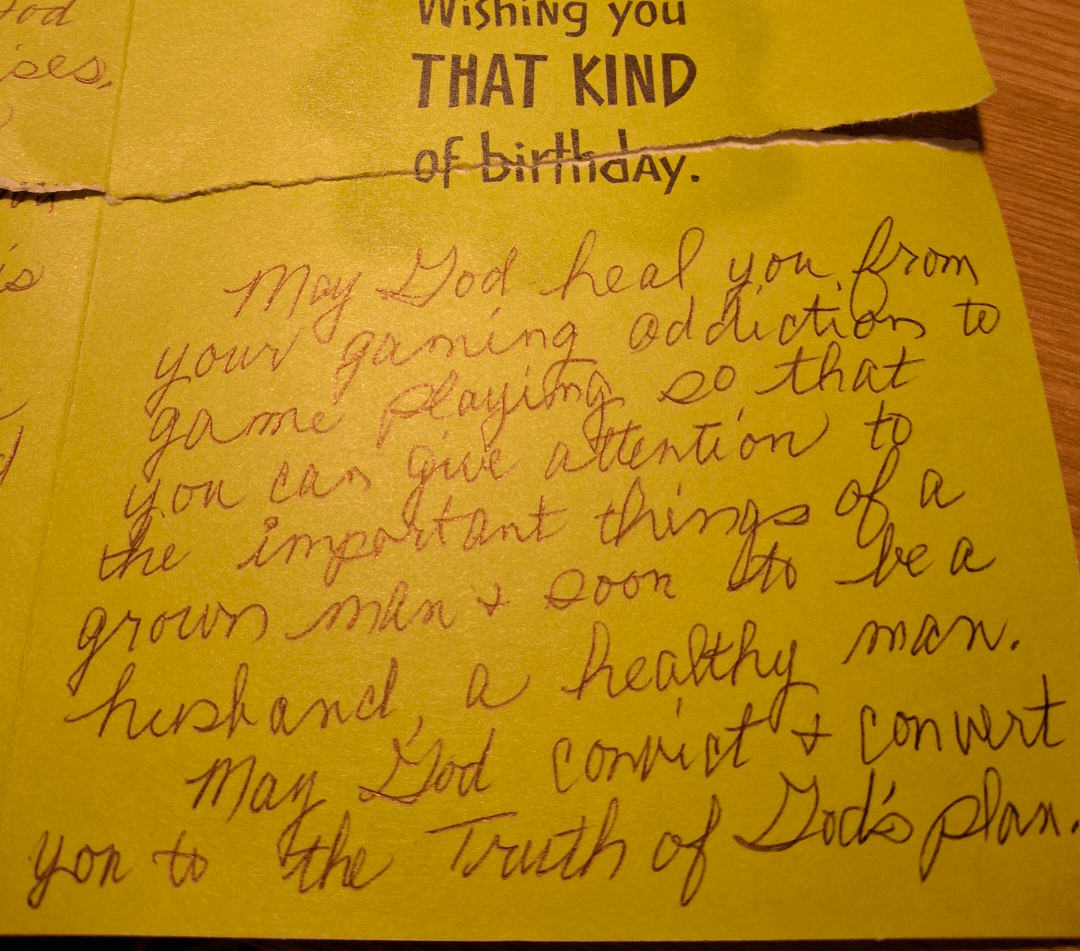 God
ises,
is
Wishing you
THAT KIND
of birthday.
May God heal you from
your gaming addiction to
game playing so that
you can give attention to
the important things of a
grown man & soon to be a
husband, a healthy man.
May God convict & convert
you to the Truth of God's plan.